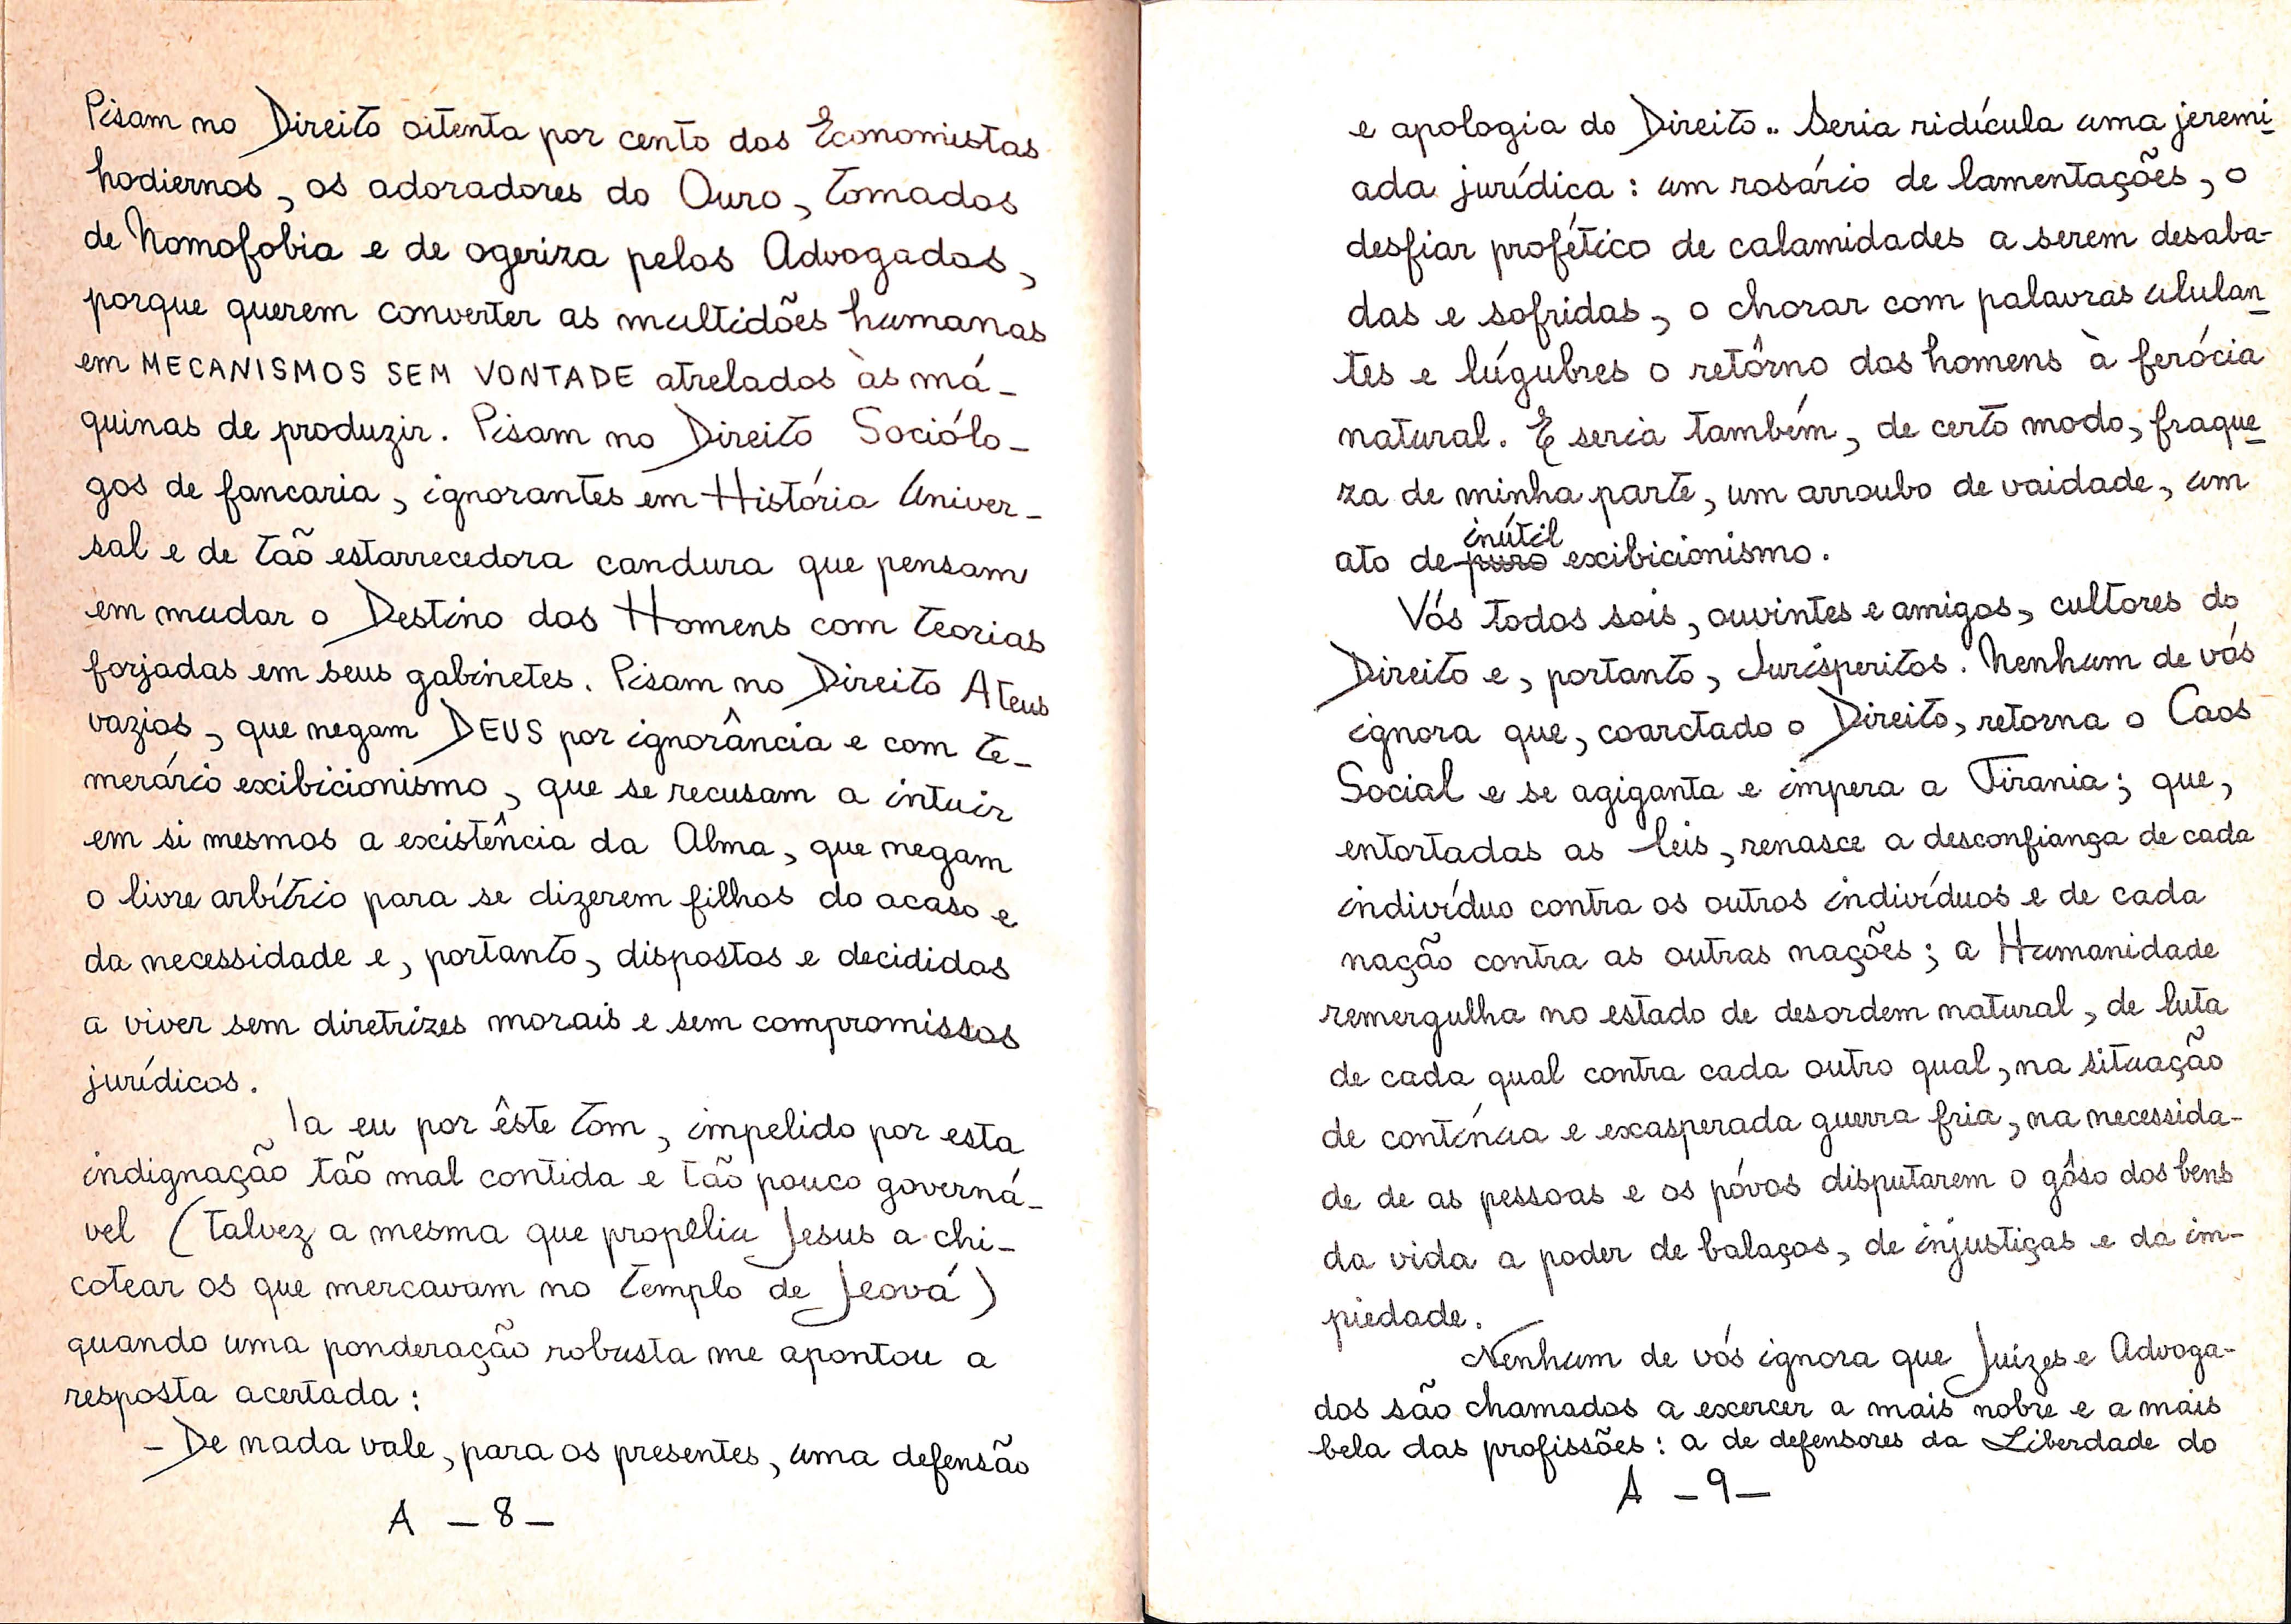 Pisam no Direito oitenta por cento dos Economistas
hodiernos, os adoradores do Ouro, tomados
de homofobia e de ogeriza pelos Advogados,
porque querem converter as multidões humanas
em MECANISMOS SEM VONTADE atrelados às má-
quinas de produzir. Pisam no Direito Sociólo-
gos de fancaria, ignorantes em História Univer-
sal e de tão estarrecedora candura que pensam
em mudar o Destino dos Homens com teorias
forjadas em seus gabinetes. Pisam no Direito Ateus
vazios, que negam DEUS por ignorância e com te-
merário exibicionismo, que se recusam a intuir
em si mesmos a existência da Alma, que negam
o livre arbítrio para se dizerem filhos do acaso e
da necessidade e, portanto, dispostos e decididos
a viver sem diretrizes morais e sem compromissos
jurídicos.
Ia eu por êste tom, impelido por esta
indignação tão mal contida e tão pouco governá-
vel (talvez a mesma que propeliu Jesus a chi-
cotear os que mercavam no templo de Jeová)
quando uma ponderação robusta me apontou a
resposta acertada:
- De nada vale, para os presentes, uma defensão
A - 8 -
e apologia do Direito.. Seria ridícula uma jeremi-
ada jurídica: um rosário de lamentações, o
desfiar profético de calamidades a serem desaba-
das e sofridas, o chorar com palavras ululan-
tes e lúgubres o retôrno dos homens à ferócia
natural. E seria também, de certo modo, fraque-
za de minha parte, um arroubo de vaidade, um
inútil
ato de puro exibicionismo.
Vós todos sois, ouvintes e amigos, cultores do
Direito e, portanto, Jurisperitos. Nenhum de vós
ignora que, coarctado o Direito, retorna o Caos
Social e se agiganta e impera a Tirania; que,
entortadas as leis, renasce a desconfiança de cada
indivíduo contra os outros indivíduos e de cada
nação contra as outras nações; a Humanidade
remergulha no estado de desordem natural, de luta
de cada qual contra cada outro qual, na situação
de contínua e exasperada guerra fria, na necessida-
de de as pessoas e os póvos disputarem o gôso dos bens
da vida a poder de balaços, de injustiças e da im-
piedade.
Nenhum de vós ignora que Juízes e Advoga-
dos são chamados a exercer a mais nobre e a mais
bela das profissões: a de defensores da Liberdade do
A - 9 -